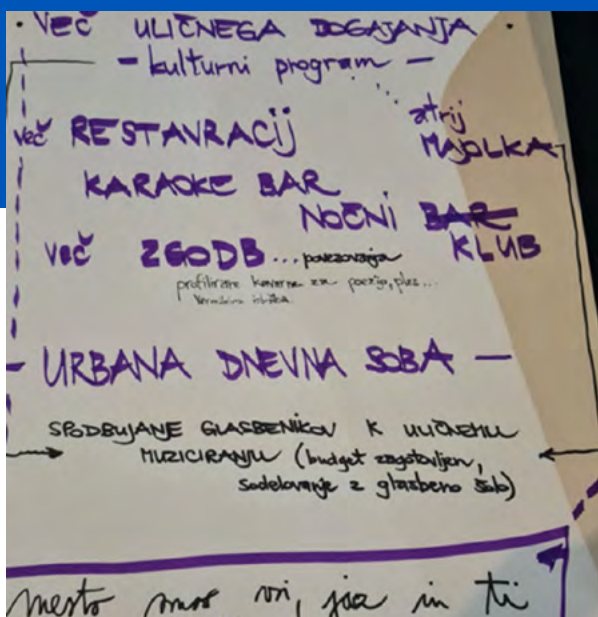 · VEČ ULIČNEGA DOGAJANJA ·
- kulturni program -
atrij
več RESTAVRACIJ MAJOLKA
KARAOKE BAR
NOČNI BAR
VEČ ZGODB... povezovanja KLUB
profilirane kavarne za poezijo, ples...
- URBANA DNEVNA SOBA -
SPODBUJANJE GLASBENIKOV K ULIČNEMU
MUZICIRANJU (budget zagotovljen,
sodelovanje z glasbeno šolo)
mesto smo vsi, jaz in ti